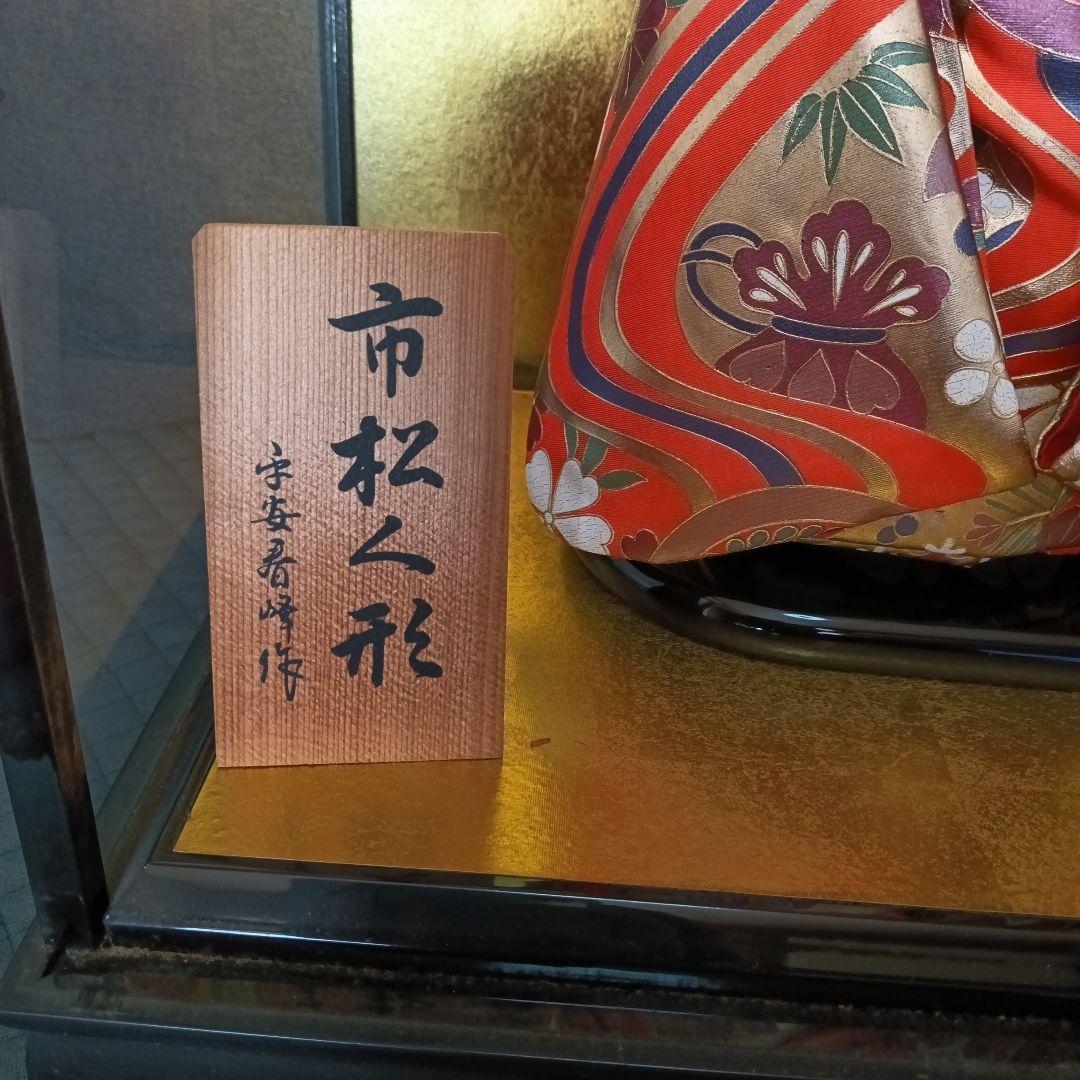 市松人形
平安春峰作